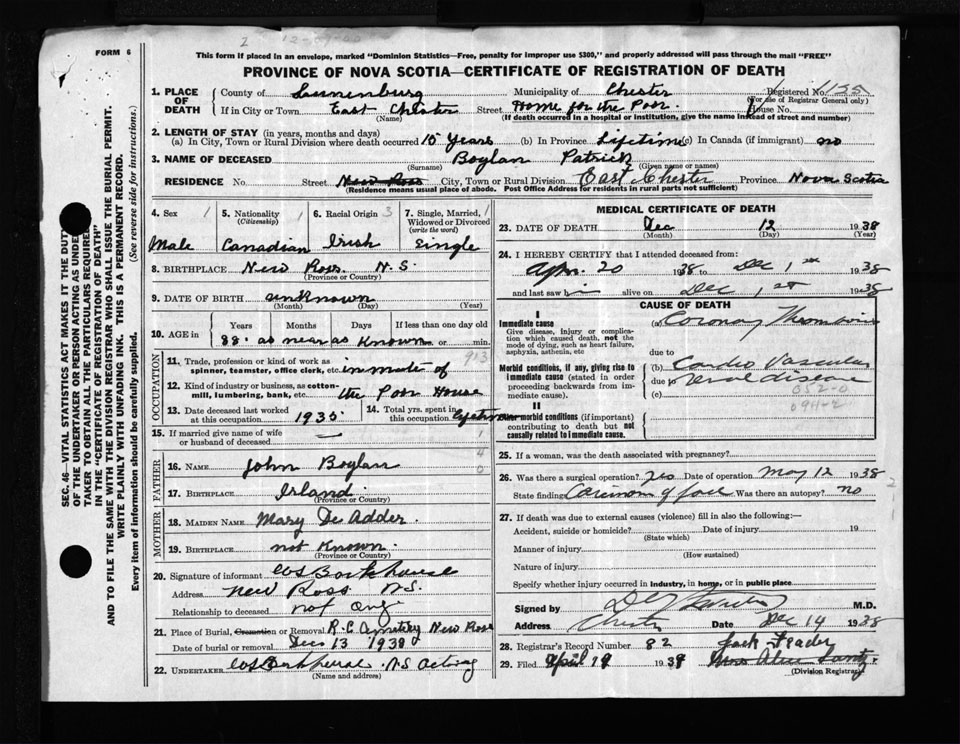 2 12-09-00
FORM 6
This form if placed in an envelope, marked "Dominion Statistics—Free, penalty for improper use $300," and properly addressed will pass through the mail "FREE"
PROVINCE OF NOVA SCOTIA—CERTIFICATE OF REGISTRATION OF DEATH
SEC. 46—VITAL STATISTICS ACT MAKES IT THE DUTY
OF THE UNDERTAKER OR PERSON ACTING AS UNDER
TAKER TO OBTAIN ALL THE PARTICULARS REQUIRED
IN THE "CERTIFICATE OF REGISTRATION OF DEATH"
AND TO FILE THE SAME WITH THE DIVISION REGISTRAR WHO SHALL ISSUE THE BURIAL PERMIT.
WRITE PLAINLY WITH UNFADING INK. THIS IS A PERMANENT RECORD.
Every item of information should be carefully supplied. (See reverse side for instructions.)
1. PLACE OF DEATH County of Lunenburg Municipality of Chester Registered No. 1155
(For use of Registrar General only)
If in City or Town East Chester Street Home for the Poor. House No.
(Name) (If death occurred in a hospital or institution, give the name instead of street and number)
2. LENGTH OF STAY (in years, months and days)
(a) In City, Town or Rural Division where death occurred 15 Years (b) In Province Lifetime (c) In Canada (if immigrant) no
3. NAME OF DECEASED Boylan Patrick
(Surname) (Given name or names)
RESIDENCE No. Street New Ross City, Town or Rural Division East Chester Province Nova Scotia
(Residence means usual place of abode. Post Office Address for residents in rural parts not sufficient)
4. Sex 1 5. Nationality 1 6. Racial Origin 3 7. Single, Married, 1
(Citizenship) Widowed or Divorced
(write the word)
Male Canadian Irish Single
8. BIRTHPLACE New Ross N.S.
(Province or Country)
9. DATE OF BIRTH unknown
(Month) (Day) (Year)
10. AGE in Years Months Days If less than one day old
88. as near as Known hrs. or min.
OCCUPATION
11. Trade, profession or kind of work as 913
spinner, teamster, office clerk, etc. inmate of
12. Kind of industry or business, as cotton-
mill, lumbering, bank, etc. the Poor House
13. Date deceased last worked 14. Total yrs. spent in
at this occupation 1935 this occupation
15. If married give name of wife 1
or husband of deceased —
FATHER
16. NAME John Boylan 4 0
17. BIRTHPLACE Irland
(Province or Country)
MOTHER
18. MAIDEN NAME Mary DeAdder.
19. BIRTHPLACE not Known.
(Province or Country)
20. Signature of informant WS Barkhouse
Address New Ross N.S.
Relationship to deceased not any
21. Place of Burial, Cremation or Removal R.C Cemetery New Ross
Date of burial or removal Dec 13 1938
22. UNDERTAKER WS Barkhouse N S acting
(Name and address)
MEDICAL CERTIFICATE OF DEATH
23. DATE OF DEATH Dec 12 1938
(Month) (Day) (Year)
24. I HEREBY CERTIFY that I attended deceased from:
Apr. 20 1938 to Dec 1st 1938
and last saw h im alive on Dec 1st 1938
CAUSE OF DEATH
I
Immediate cause (a) Coronary Thrombosis
Give disease, injury or complication
which caused death, not the
mode of dying, such as heart failure,
asphyxia, asthenia, etc
due to
Morbid conditions, if any, giving rise to (b) Cardio Vascular
immediate cause (stated in order due to renal disease
proceeding backwards from immediate
cause). (c) 052-0
II 094-2
Other morbid conditions (if important)
contributing to death but not
causally related to immediate cause.
25. If a woman, was the death associated with pregnancy?
26. Was there a surgical operation? Yes Date of operation May 12 1938
State finding Carcinoma of face Was there an autopsy? no 2
27. If death was due to external causes (violence) fill in also the following:—
Accident, suicide or homicide? Date of injury 19
(State which)
Manner of injury
(How sustained)
Nature of injury
Specify whether injury occurred in industry, in home, or in public place
Signed by M.D.
Address Chester Date Dec 14 1938
28. Registrar's Record Number 82 Jack
29. Filed April 19 1939
(Division Registrar)